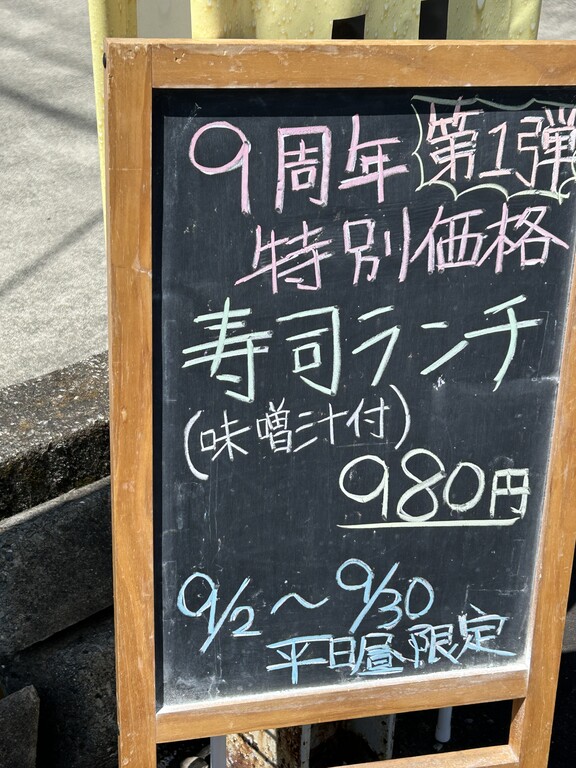 9周年 第1弾
特別価格
寿司ランチ
(味噌汁付)
980円
9/2〜9/30
平日昼限定